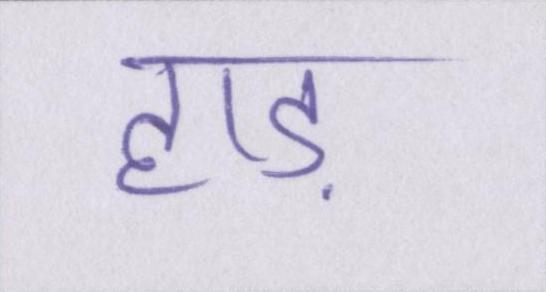 हाड़